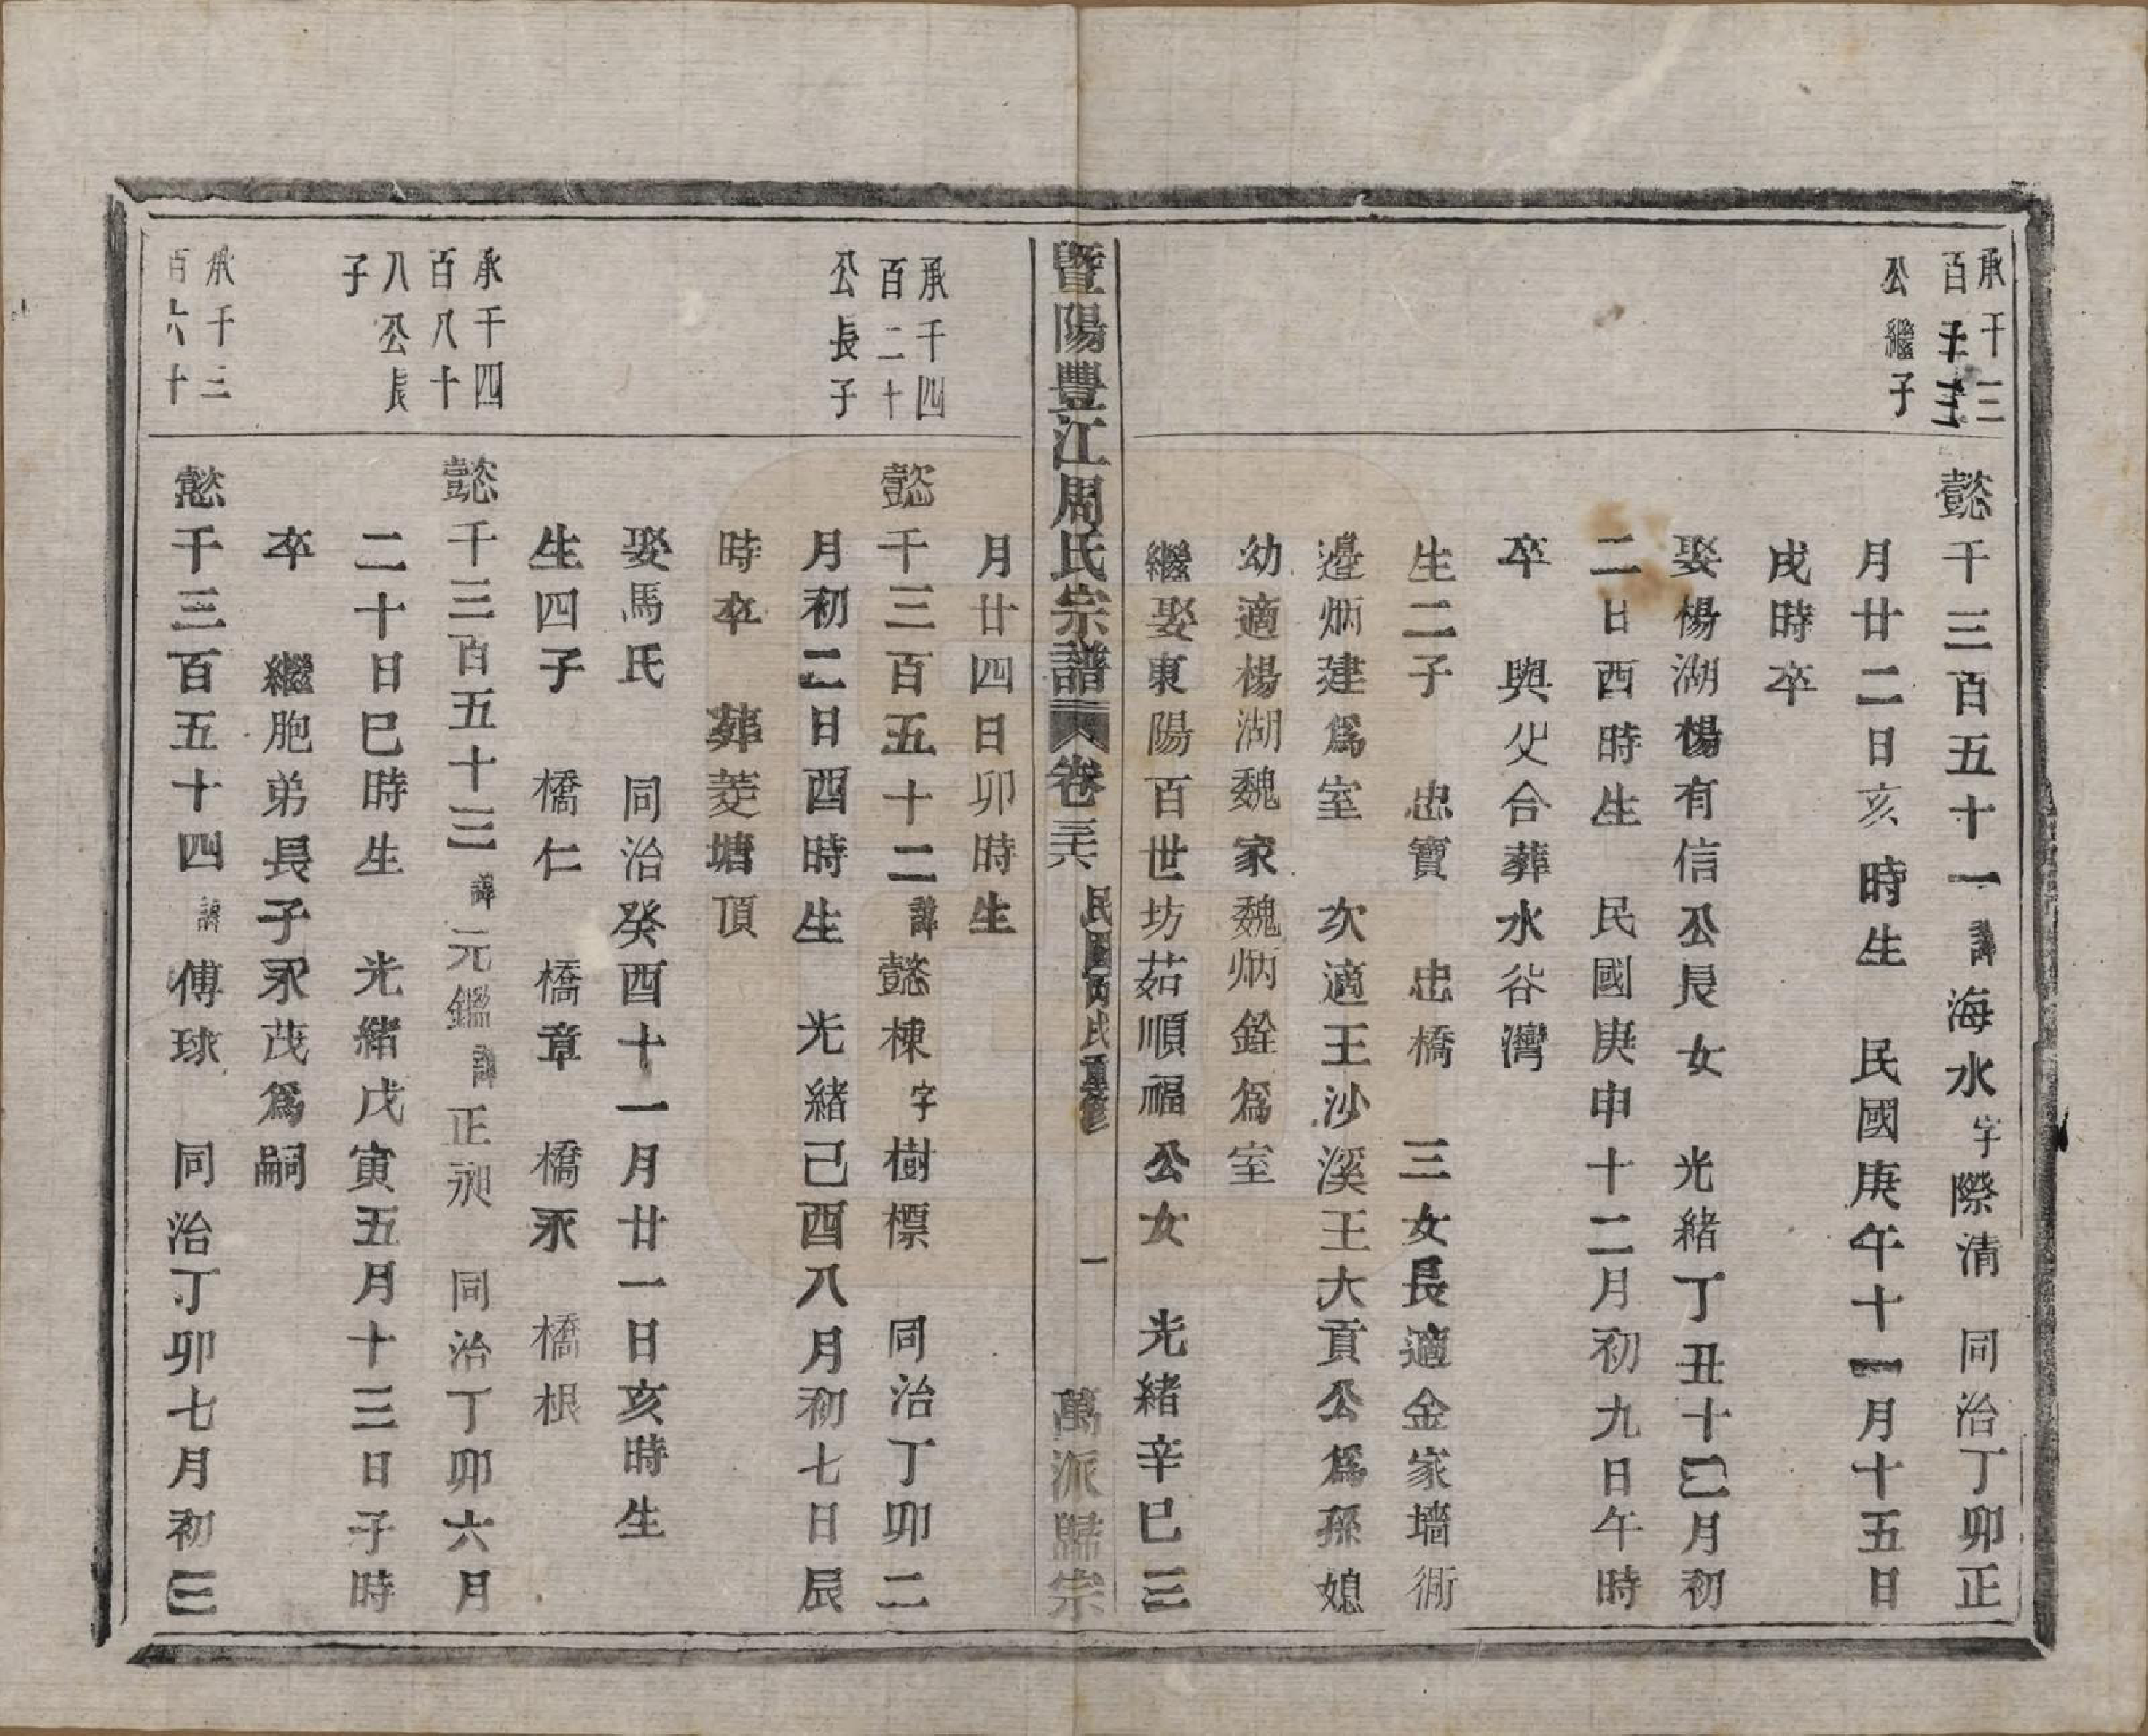 承千三
百十三
公繼子
懿千三百五十一諱海水字際清　同治丁卯正
月廿二日亥時生　民國庚午十一月十五日
戌時卒
娶楊湖楊有信公長女　光緒丁丑十二月初
二日酉時生　民國庚申十二月初九日午時
卒　與父合葬水谷灣
生二子　忠寶　忠橋　三女長適金家墻衕
邊炳建爲室　次適王沙溪王大貢公爲孫媳
幼適楊湖魏家魏炳銓爲室
繼娶東陽百世坊茹順福公女　光緒辛巳三
暨陽豐江周氏宗譜　卷三六　民國丙戌重修　一　萬派歸宗
月廿四日卯時生
承千四
百二十
公長子
懿千三百五十二諱懿棟字樹標　同治丁卯二
月初二日酉時生　光緒己酉八月初七日辰
時卒　葬菱塘頂
娶馬氏　同治癸酉十一月廿一日亥時生
生四子　橋仁　橋章　橋永　橋根
承千四
百八十
八公長
子
懿千三百五十三諱元鑑諱正昶　同治丁卯六月
二十日巳時生　光緒戊寅五月十三日子時
卒　繼胞弟長子永茂爲嗣
承千三
百六十
懿千三百五十四諱傅球　同治丁卯七月初三